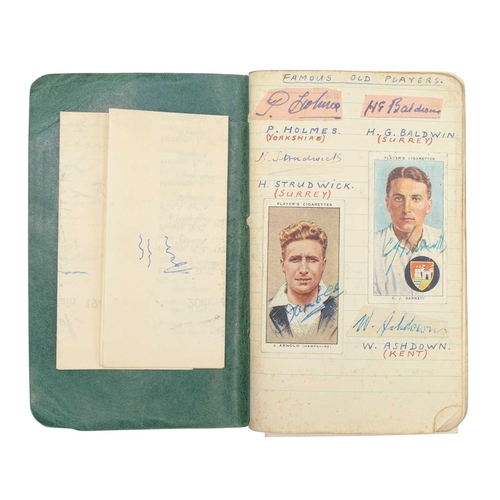 FAMOUS OLD PLAYERS.
P. Holmes
P. HOLMES.
(YORKSHIRE)
H. Strudwick
H. STRUDWICK.
(SURREY)
PLAYER'S CIGARETTES
J. ARNOLD (HAMPSHIRE)
HG Baldwin
H. G. BALDWIN
(SURREY)
PLAYER'S CIGARETTES
E. J. GARRETT
W. Ashdown
W. ASHDOWN.
(KENT)